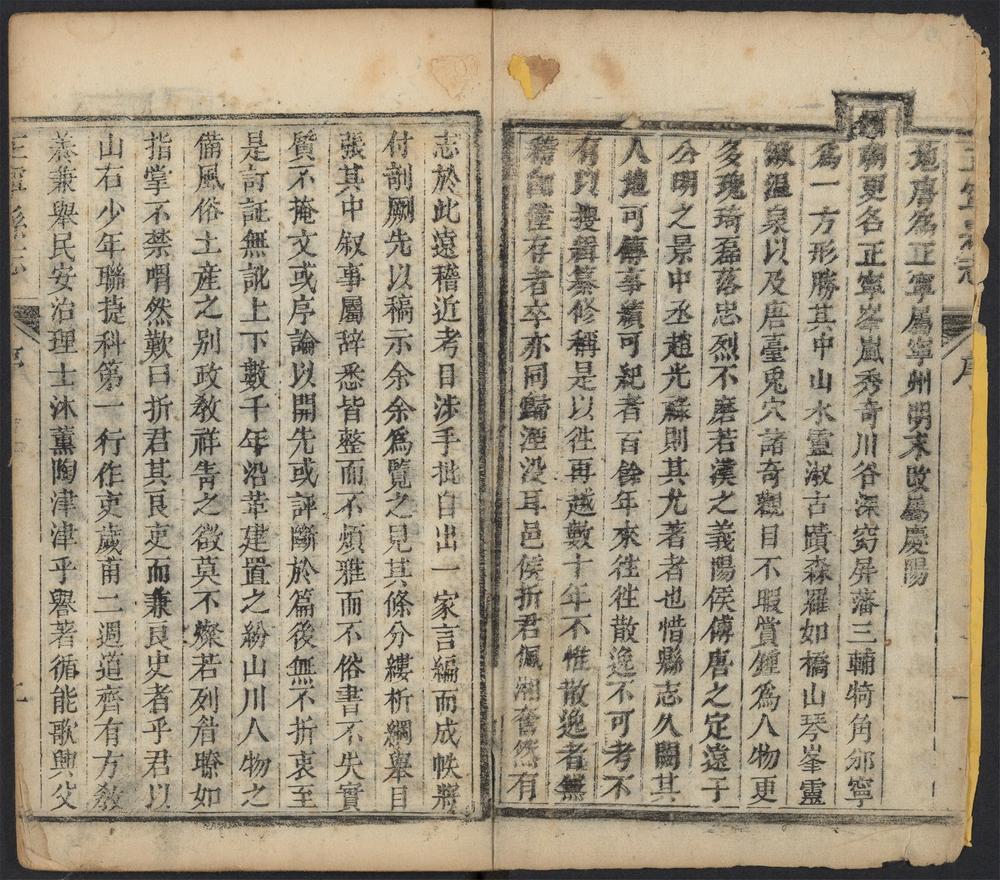 正寧縣志
序
一
地唐為正寧屬寧州明末改屬慶陽
朝更名正寧峯嵐秀奇川谷深窈屏藩三輔犄角邠寧
為一方形勝其中山水靈淑古蹟森羅如橋山琴峯靈
湫溫泉以及唐臺兎穴諸奇觀目不暇賞鍾為人物更
多瑰琦磊落忠烈不磨若漢之義陽侯傅唐之定遠于
公明之景中丞趙光祿則其尤著者也惜縣志久闕其
人遺可傳事績可紀者百餘年來往往散逸不可考不
有以搜輯纂修稱是以往再越數十年不惟散逸者無
稽即僅存者卒亦同歸湮没耳邑侯折君佩湘奮然有
志於此遠稽近考目涉手批自出一家言編而成帙將
付剞劂先以稿示余余為覽之見其條分縷析綱舉目
張其中叙事屬辞悉皆整而不煩雅而不俗書不失實
質不掩文或序論以開先或評斷於篇後無不折衷至
是訂証無訛上下數千年沿革建置之紛山川人物之
備風俗土産之别政敎祥眚之徵莫不燦若列眉瞭如
指掌不禁喟然歎曰折君其良吏而兼良史者乎君以
山右少年聯捷科第一行作吏歲甫二週道齊有方敎
養兼舉民安治理士沐薰陶津津乎譽著循能歌興父
正寧縣志
序